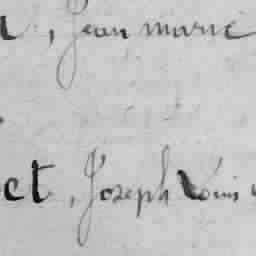 , Jean marie
et, Joseph Louis